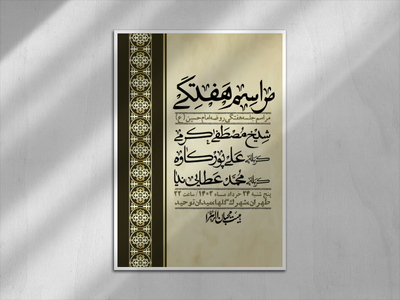 مراسم هفتگی
مراسم جلسه هفتگی روضه امام حسین (ع)
شیخ مصطفی کرمی
کربلایی علی پورکاوه
کربلایی محمد عطایی نیا
پنج شنبه ۲۴ خرداد ماه ۱۴۰۳ | ساعت ۲۲
طهران، شهرک گلها، میدان توحید
هیئت محبان الزهرا